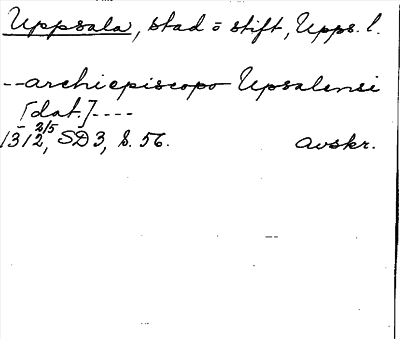 Uppsala, stad o stift, Upps. l.
--archiepiscopo Upsalensi
[dat.]----
1312 2/5, SD3, s. 56. avskr.